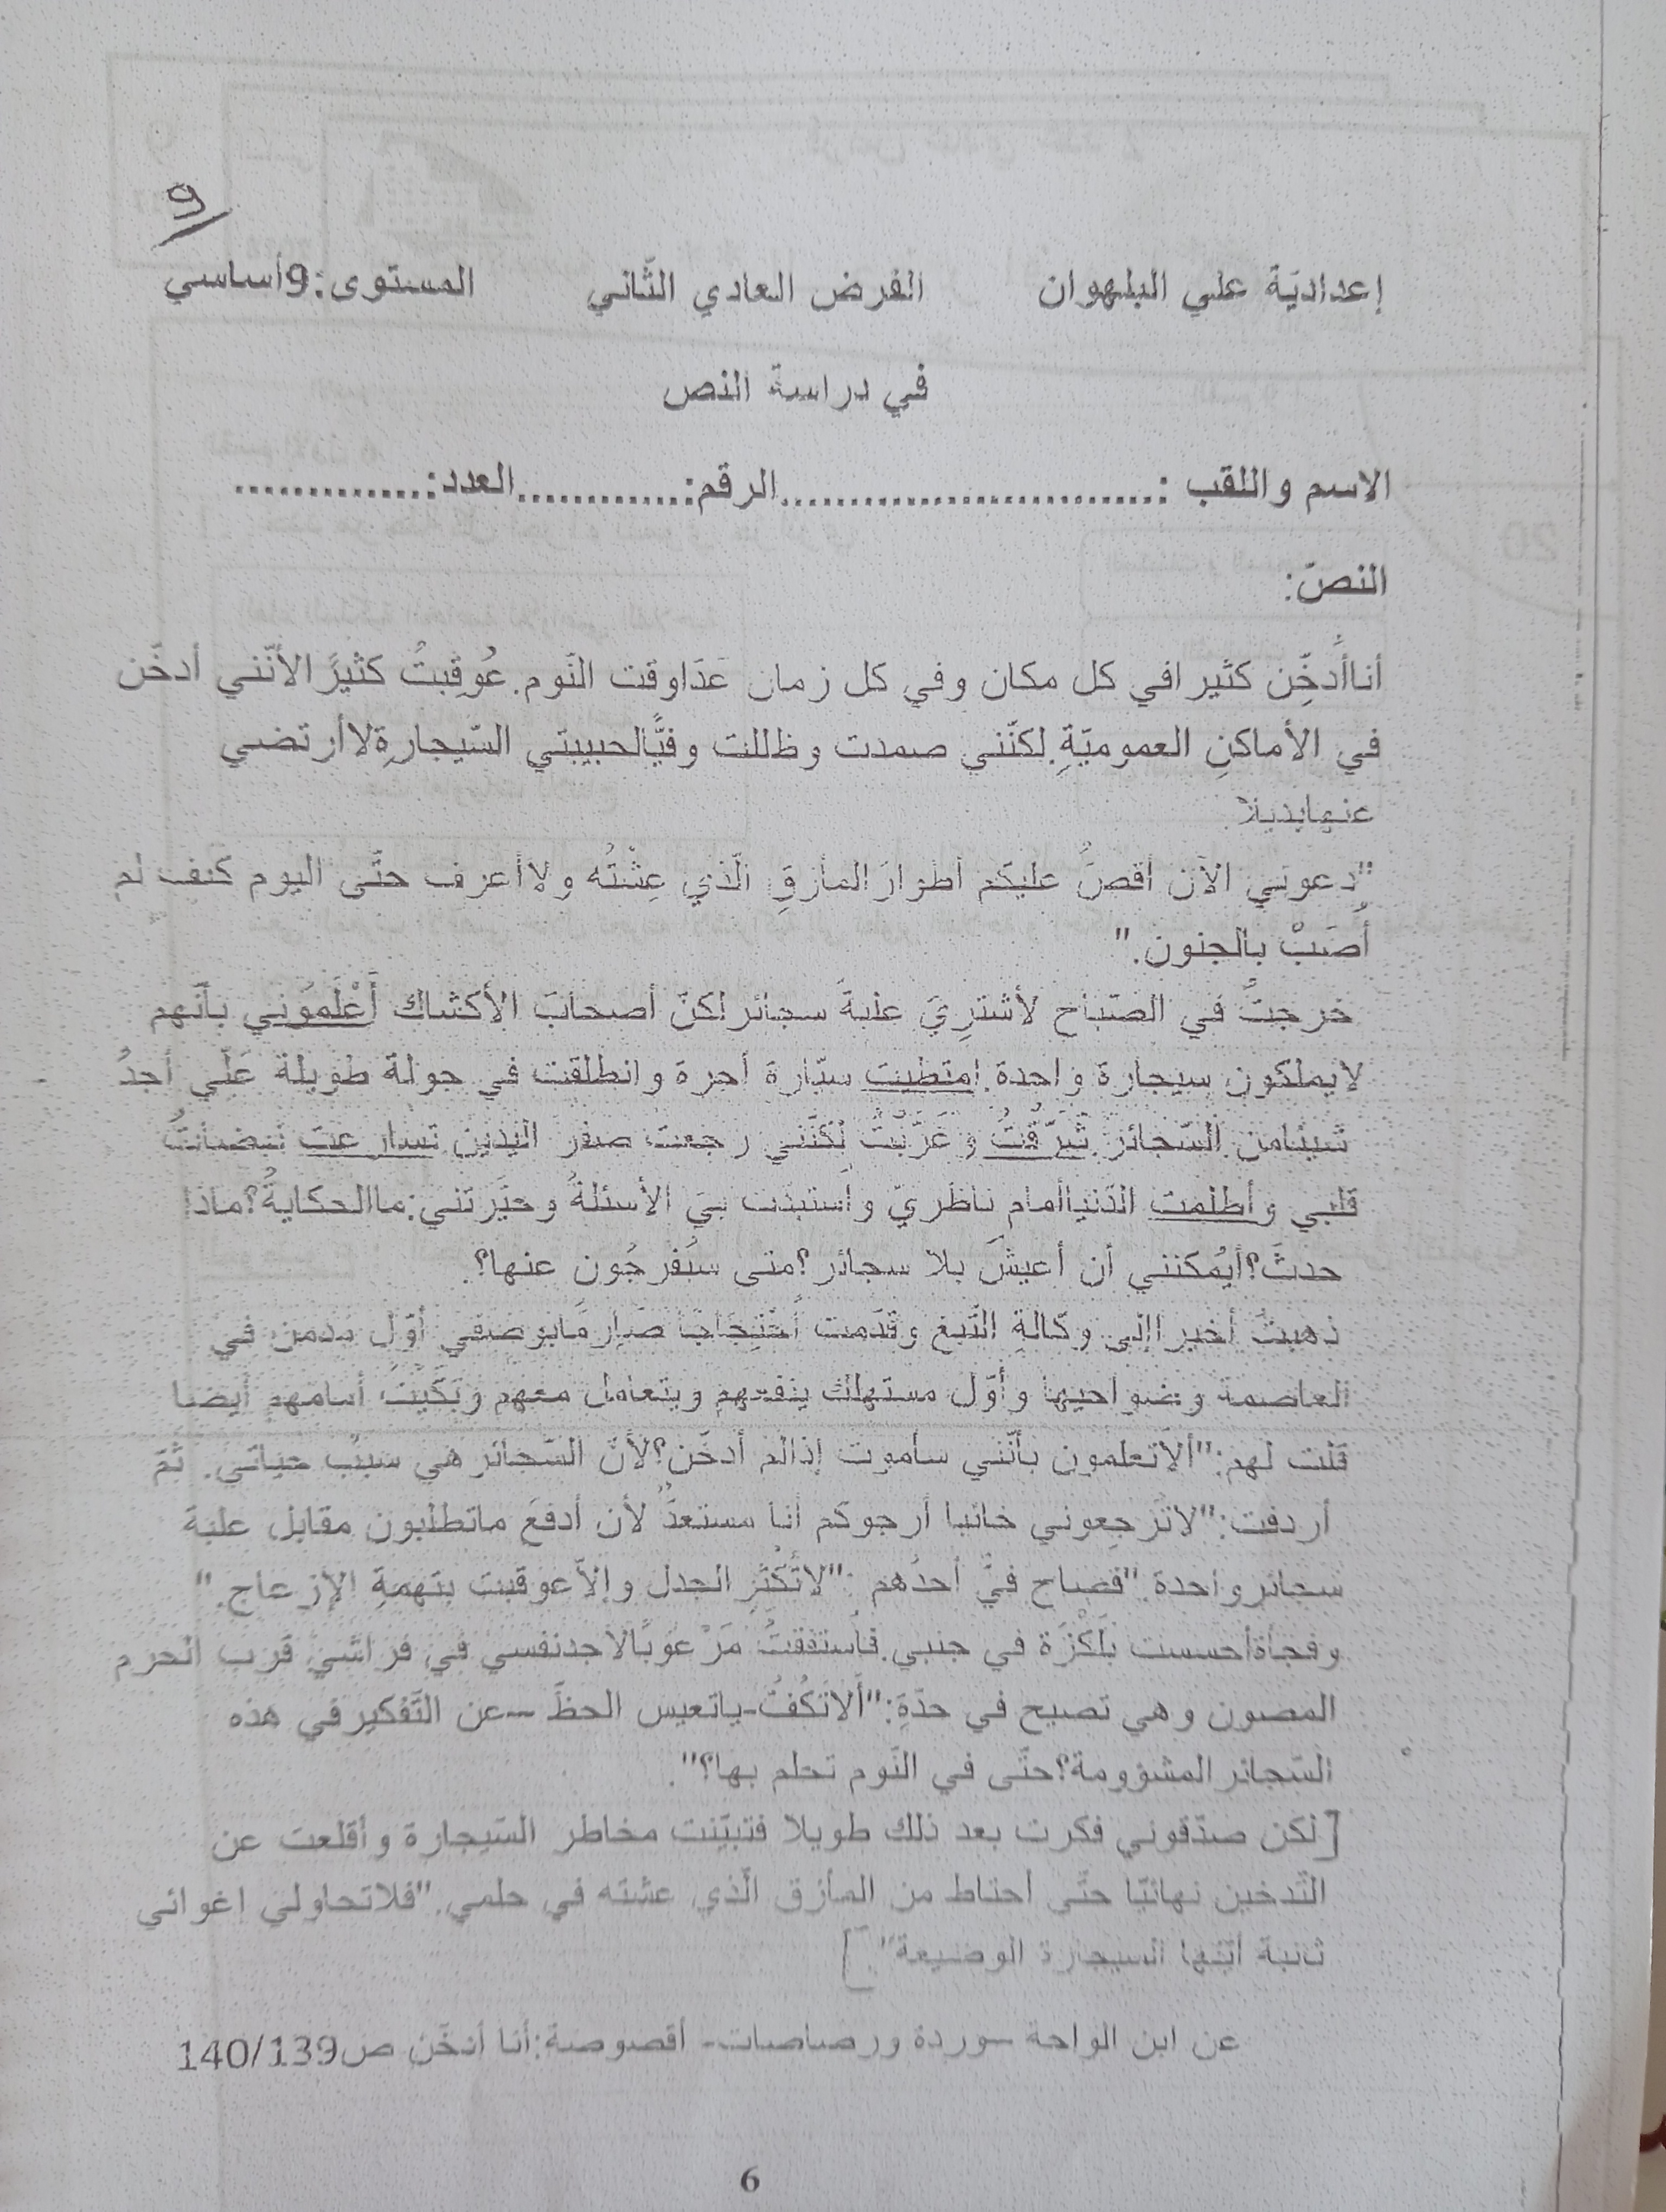 9
إعداديّة علي البلهوان الفرض العادي الثّاني المستوى:9أساسي
في دراسة النص
الاسم واللقب :............................الرقم:.............العدد:..............
النصّ:
أناأُدخِّن كثيرافي كل مكان وفي كل زمان عدَاوقت النّوم.عُوقِبتُ كثيرًالأنّني أدخّن
في الأماكنِ العموميّةِ.لكنّني صمدت وظللت وفيًّالحبيبتي السّيجارةِلاأرتضي
عنهابديلا.
"دعوني الآن أقصُّ عليكم أطوارَ المأزقِ الّذي عِشْتُه ولاأعرف حتّى اليوم كيف لم
أُصَبْ بالجنون."
خرجتُ في الصّباح لأشترِيَ علبةَ سجائرلكنّ أصحابَ الأكشاك أَعْلَمُوني بأنّهم
لايملكون سيجارة واحدة.امتطيت سيّارة أجرة وانطلقت في جولة طويلة عَلّي أجدُ
شيئامن السّجائر.شَرّقْتُ وغَرّبْتُ لكنّني رجعت صفر اليدين تسارعت نبضاتُ
قلبي وأظلمت الدّنياأمام ناظريّ واستبدّت بيَ الأسئلةُ وحيّرتني:ماالحكايةُ؟ماذا
حدثَ؟أيُمكنني أن أعيشَ بلا سجائر؟متى سيُفرجُون عنها؟.
ذهبتُ أخيراإلى وكالةِ التّبغ وقدّمت احْتِجَاجًا صارمًابوصفي أوّل مدمن في
العاصمة وضواحيها وأوّل مستهلك ينفعهم ويتعامل معهم وبَكَيْتُ أمامهم أيضا
قلت لهم:"ألاتعلمون بأنّني سأموت إذالم أدخّن؟لأنّ السّجائرهي سببُ حياتي. ثمّ
أردفت:"لاتَرجِعوني خائبا أرجوكم أنا مستعدٌّ لأن أدفعَ ماتطلبون مقابل علبة
سجائرواحدة."فصاح فيّ أحدُهم :"لاتُكْثِرِ الجدل وإلاّعوقبت بتهمةِ الإزعاج."
وفجأةأحسست بلَكْزَة في جنبي.فاستفقتُ مَرْعوبًالأجدنفسي في فراشي قرب الحرم
المصون وهي تصيح في حدّةِ:"أَلاتَكُفُّ-ياتعيس الحظّ –عن التّفكيرفي هذه
السّجائرالمشؤومة؟حتّى في النّوم تحلم بها؟".
[لكن صدّقوني فكرت بعد ذلك طويلا فتبيّنت مخاطر السّيجارة وأقلعت عن
التّدخين نهائيّا حتّى أحتاط من المأزق الّذي عشته في حلمي."فلاتحاولي إغوائي
ثانية أيّتها السيجارة الوضيعة".]
عن ابن الواحة –وردة ورصاصات- أقصوصة:أنا أدخّن ص140/139
6